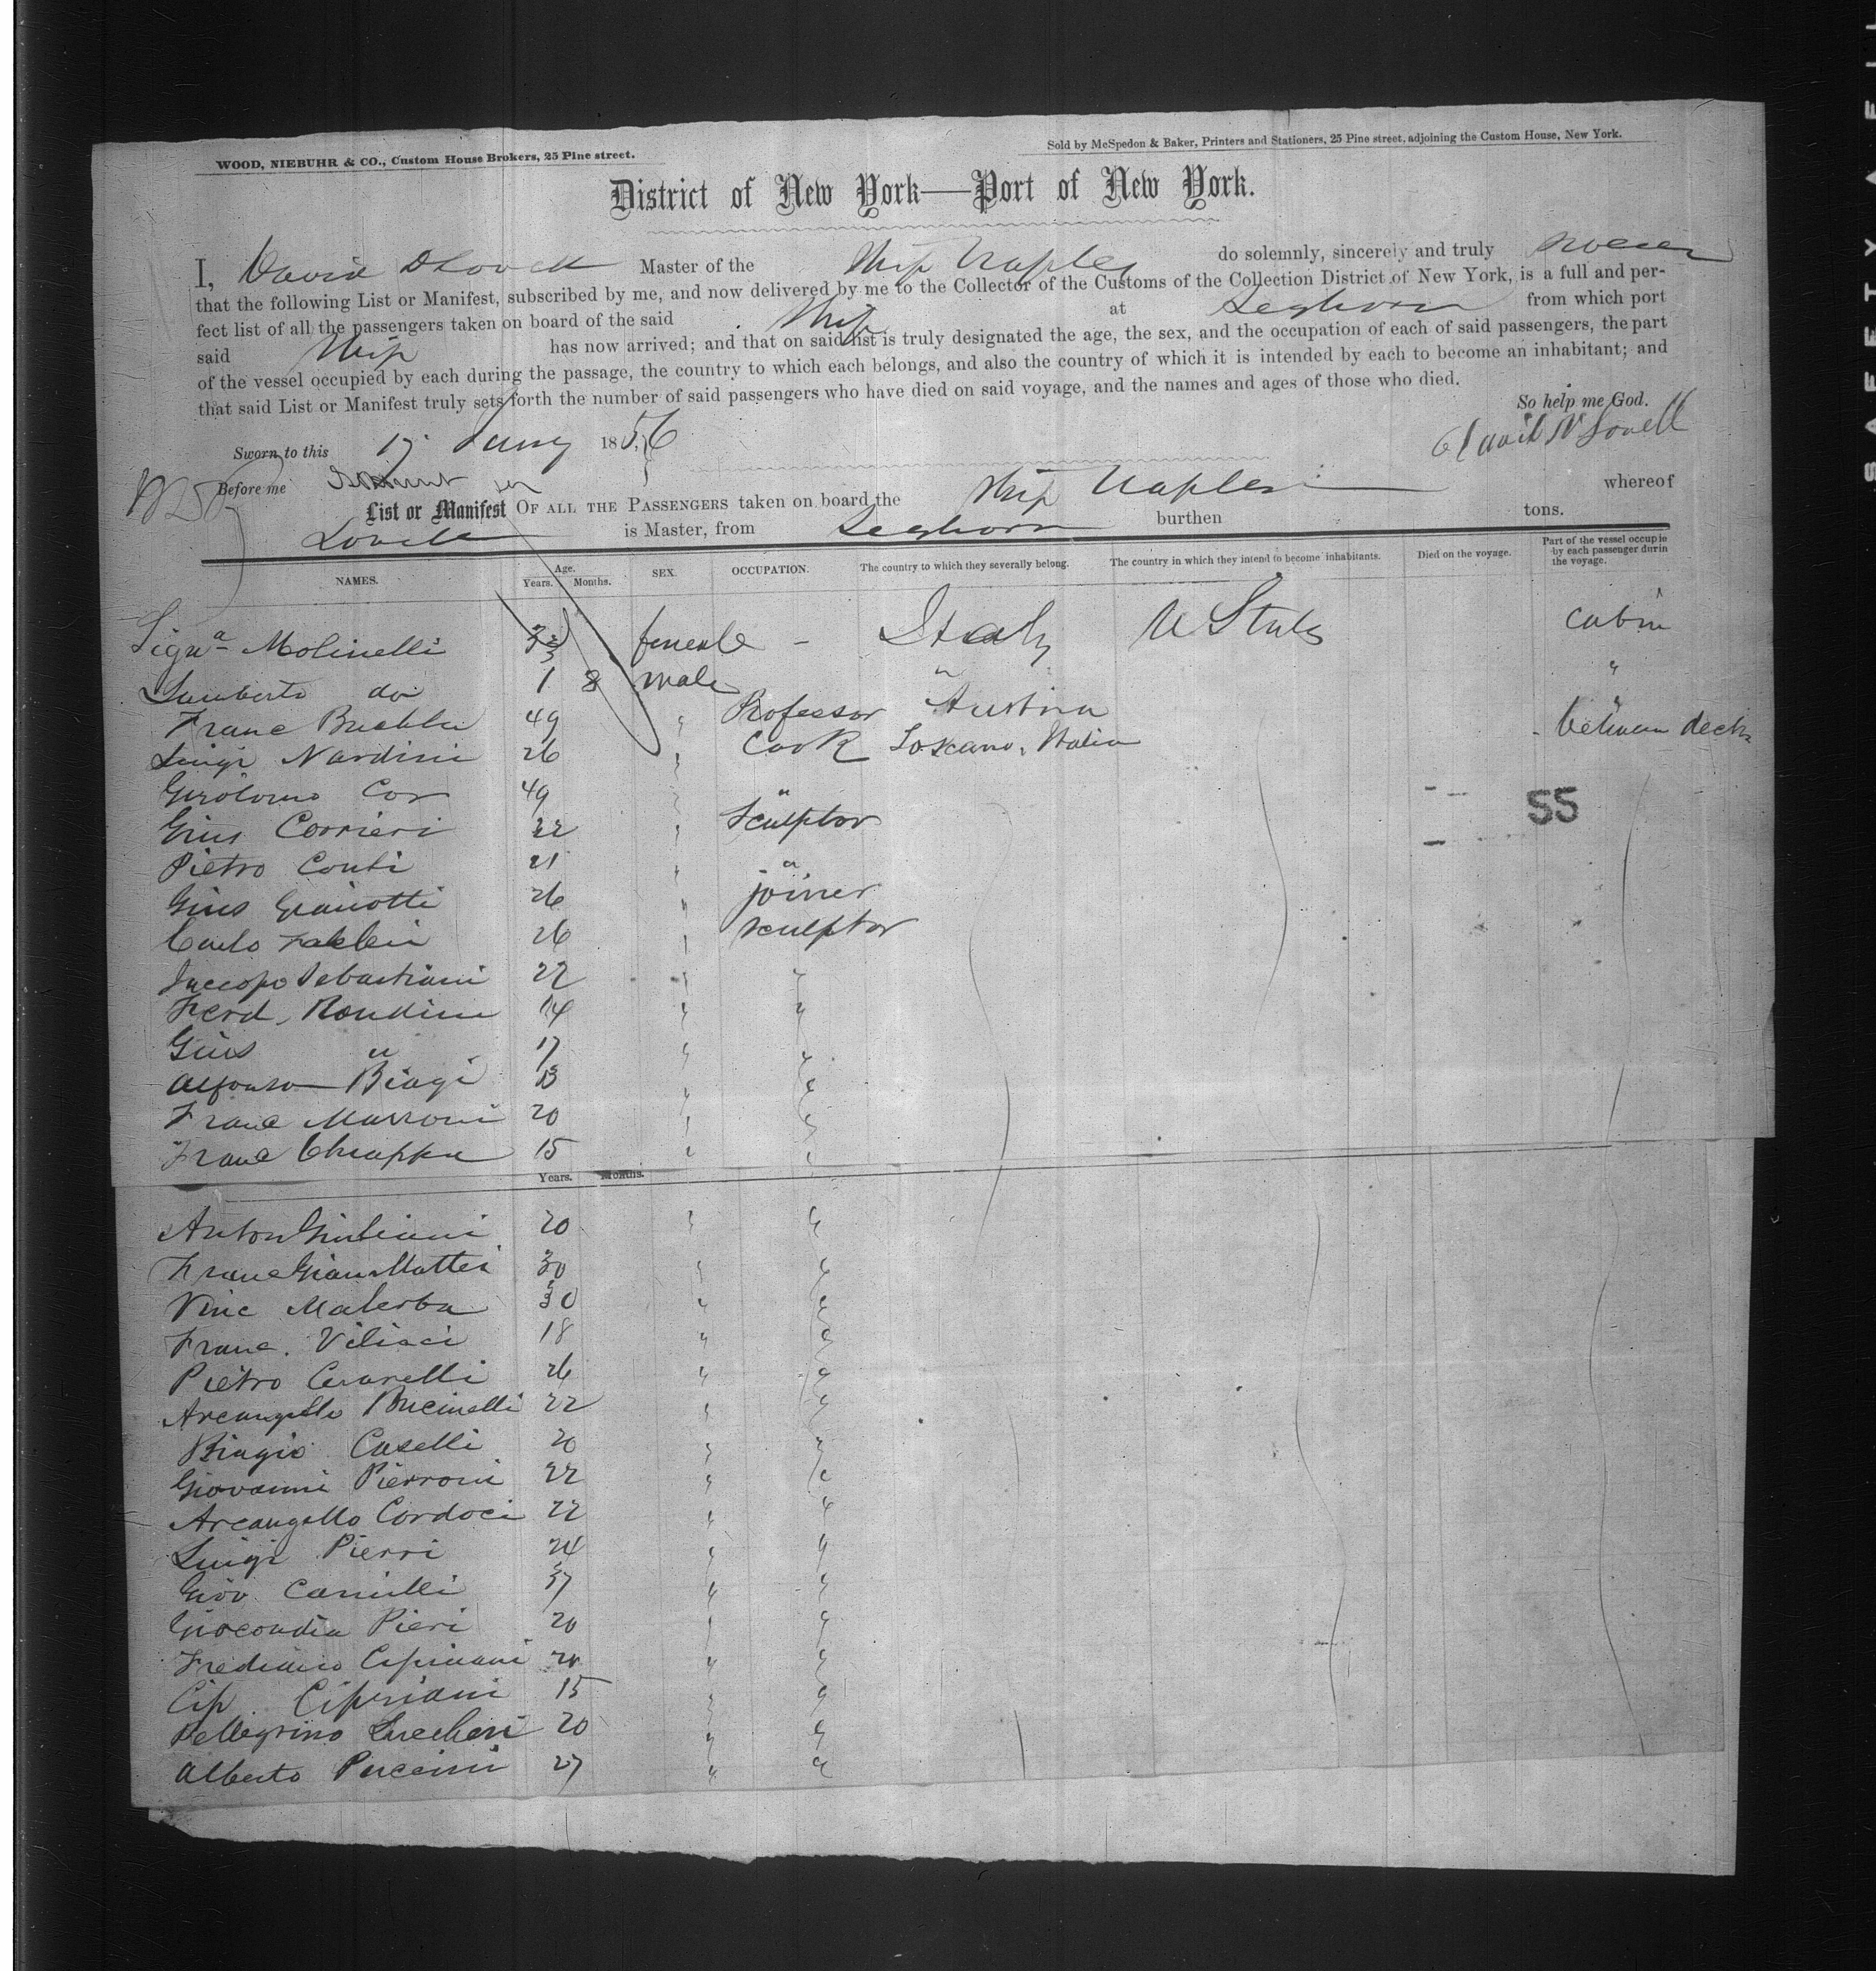 WOOD, NIEBUHR & CO., Custom House Brokers, 25 Pine street.
Sold by McSpedon & Baker, Printers and Stationers, 25 Pine street, adjoining the Custom House, New York.
District of New York—Port of New York.
I, David Lovell Master of the Ship Naples do solemnly, sincerely and truly swear
that the following List or Manifest, subscribed by me, and now delivered by me to the Collector of the Customs of the Collection District of New York, is a full and per-
fect list of all the passengers taken on board of the said Ship at Leghorn from which port
said Ship has now arrived; and that on said list is truly designated the age, the sex, and the occupation of each of said passengers, the part
of the vessel occupied by each during the passage, the country to which each belongs, and also the country of which it is intended by each to become an inhabitant; and
that said List or Manifest truly sets forth the number of said passengers who have died on said voyage, and the names and ages of those who died.
So help me God.
Sworn to this 17 1856 David N Lovell
Before me
List or Manifest OF ALL THE PASSENGERS taken on board the Ship Naples whereof
Lovell is Master, from Leghorn burthen tons.
NAMES. Age. Years. Months. SEX. OCCUPATION. The country to which they severally belong. The country in which they intend to become inhabitants. Died on the voyage. Part of the vessel occupie by each passenger durin the voyage.
Signa Molinelli 32 female - Italy U States cabin
Lamberto do 1 8 male " "
Franc 49 " Professor Austria between decks
Luigi Nardini 26 " Cook Toscano, Italia
Girolomo Cor 49 " "
Gius Corrieri 22 " Sculptor
55
Pietro Conti 21 " "
Gius Gianotti 26 " joiner
Carlo 26 " sculptor
Jaccopo Sebastiani 22 " "
Ferd. Rondini 14 " "
Gius " 17 " "
Alfonso Biagi 13 " "
Franc Marroni 20 " "
Franc Chiappa 15 " "
Years. Months.
Anton Giuliani 20 " "
Franc GianMattei 30 " "
Vinc Malerba 30 " "
Franc. Viliaci 18 " "
Pietro 26 " "
Arcangello Bucinelli 22 " "
Biagio Caselli 20 " "
Giovanni Pierroni 22 " "
Arcangello Cordoci 22 " "
Luigi Pierri 24 " "
Giov Camilli 37 " "
Giocondia Pieri 20 " "
Frediano Cipriani 24 " "
Cip. Cipriani 15 " "
Pellegrino Luccheri 20 " "
Alberto Puccini 27 " "
SAFETY